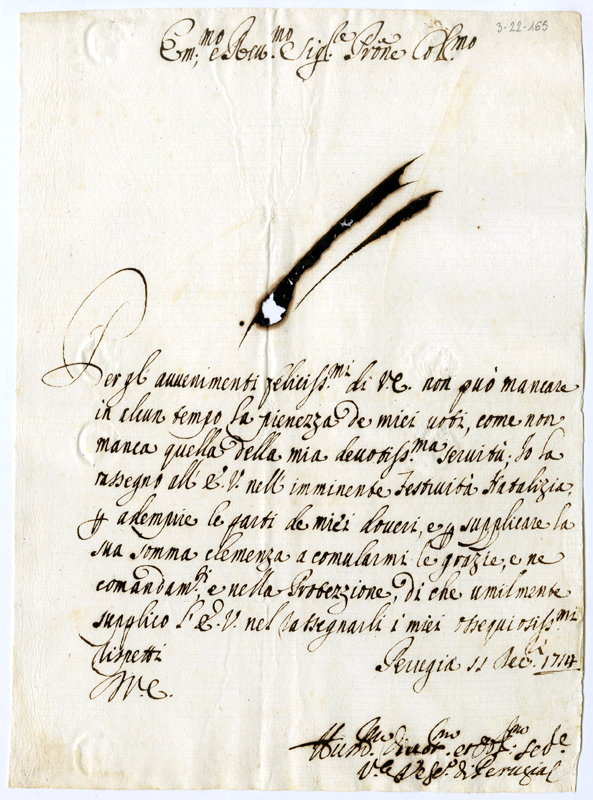 3-22-165
Em:mo e Reu:mo Sig:re Prõne Col:mo
Per gl' auuenimenti feliciss:mi di V.E. non può mancare
in alcun tempo la pienezza de miei uoti, come non
manca quella della mia deuotiss:ma seruitù; Io la
rassegno all' E.V. nell' imminente Festiuità Natalizia,
p adempire le parti de miei doueri, e p supplicare la
sua somma clemenza a comularmi le grazie, e ne
comandam:ti, e nella Protezzione, di che umilmente
supplico l' E.V. nel rassegnarli i miei ossequiosiss:mi
rispetti
Perugia 11 Dec: 1714.
V.E.
Hum:mo Diuot:mo et Obl:mo Se:re
di Perugia